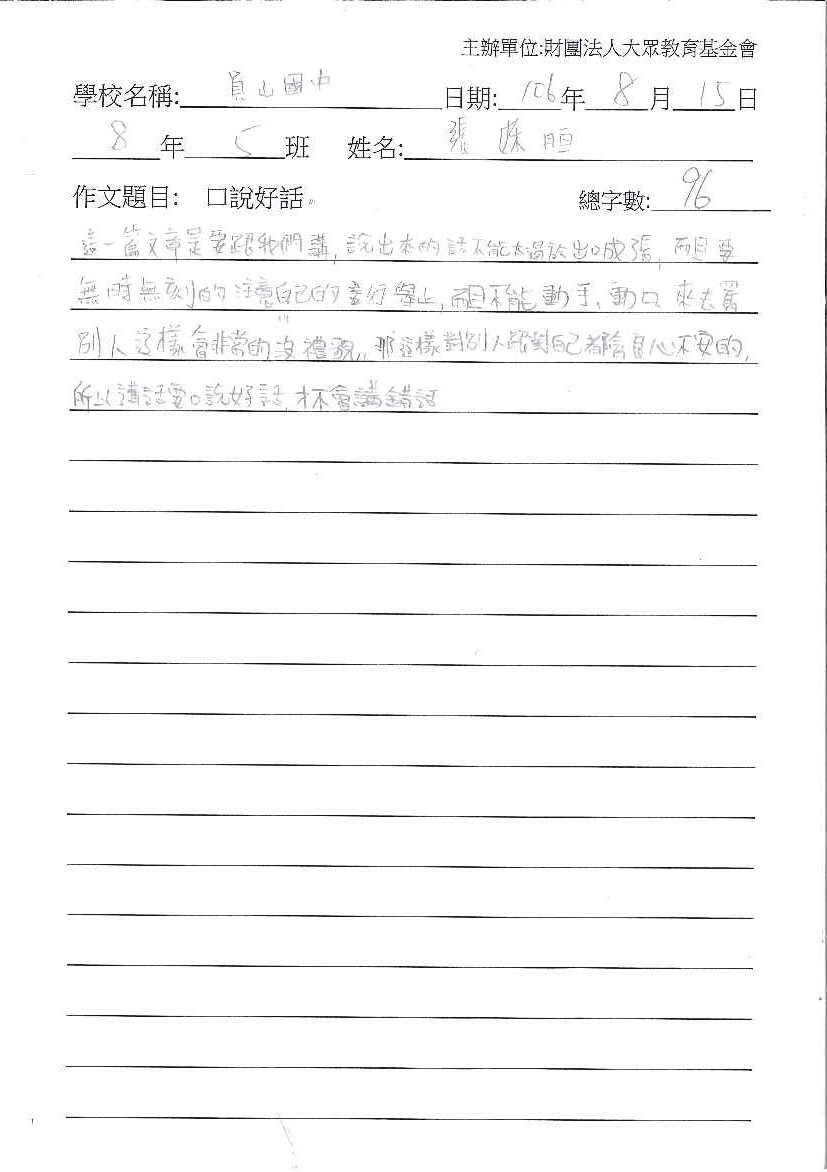 主辦單位:財團法人大眾教育基金會
學校名稱: 員山國中 日期: 106年 8 月 15 日
8 年 5 班 姓名: 張
作文題目: 口說好話。 總字數: 96
這一篇文章是要跟我們講,說出來的話不能太過於出口成張,而且要
無時無刻的注意自己的言行舉止,而且不能動手、動口 來去罵
別人這樣會非常的沒禮貌,那這樣對別人跟對自己都會良心不安的,
所以講話要口說好話,才不會講錯話